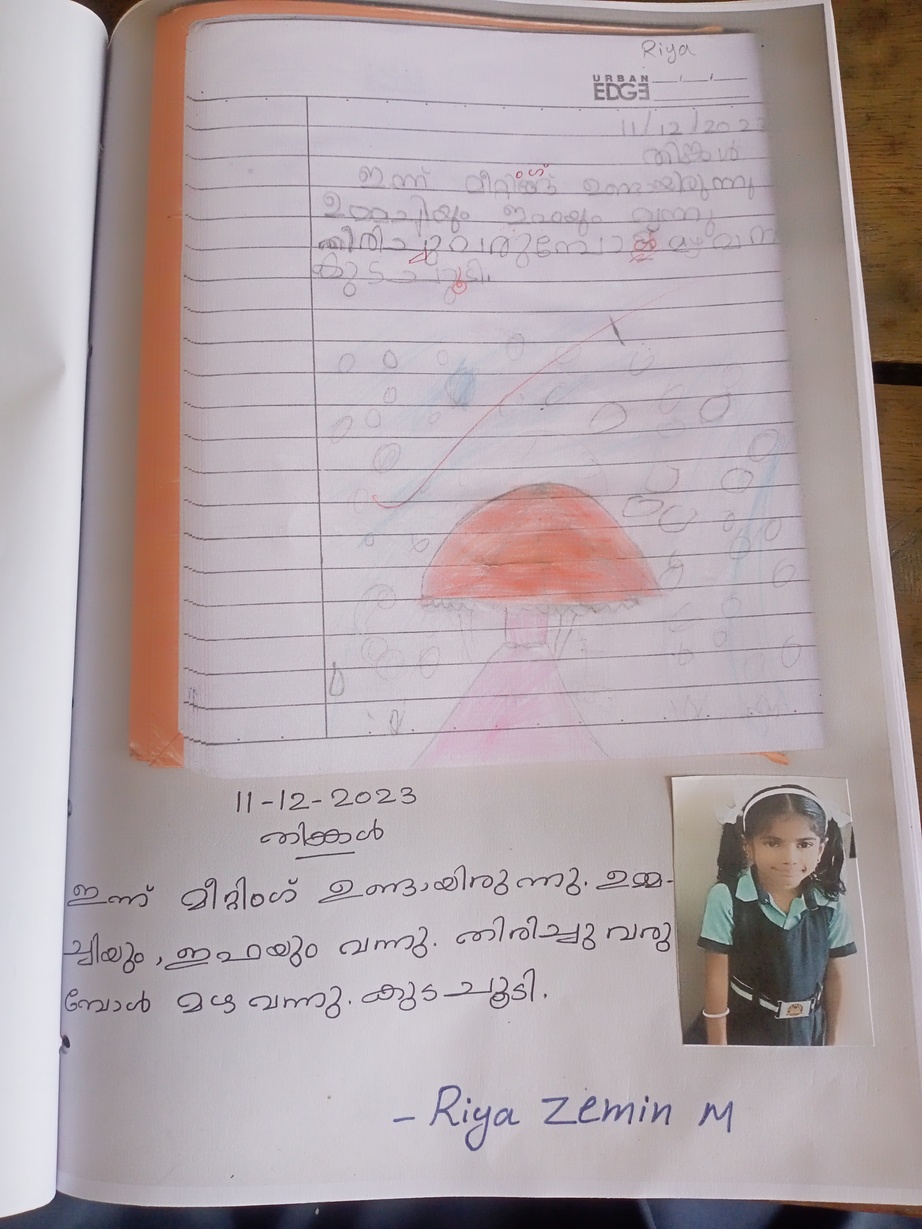 Riya
URBAN
EDGE
11/12/2023
തിങ്കൾ
ഇന്ന് മീറ്റിംഗ് ഉണ്ടായിരുന്നു
ഉമ്മച്ചിയും ഇഫയും വന്നു
തിരിച്ചുവരുമ്പോൾ മഴ വന്നു
കുട ചൂടി.
11-12-2023
തിങ്കൾ
ഇന്ന് മീറ്റിംഗ് ഉണ്ടായിരുന്നു. ഉമ്മ-
ച്ചിയും, ഇഫയും വന്നു. തിരിച്ചു വരു
മ്പോൾ മഴ വന്നു. കുട ചൂടി.
- Riya Zemin M